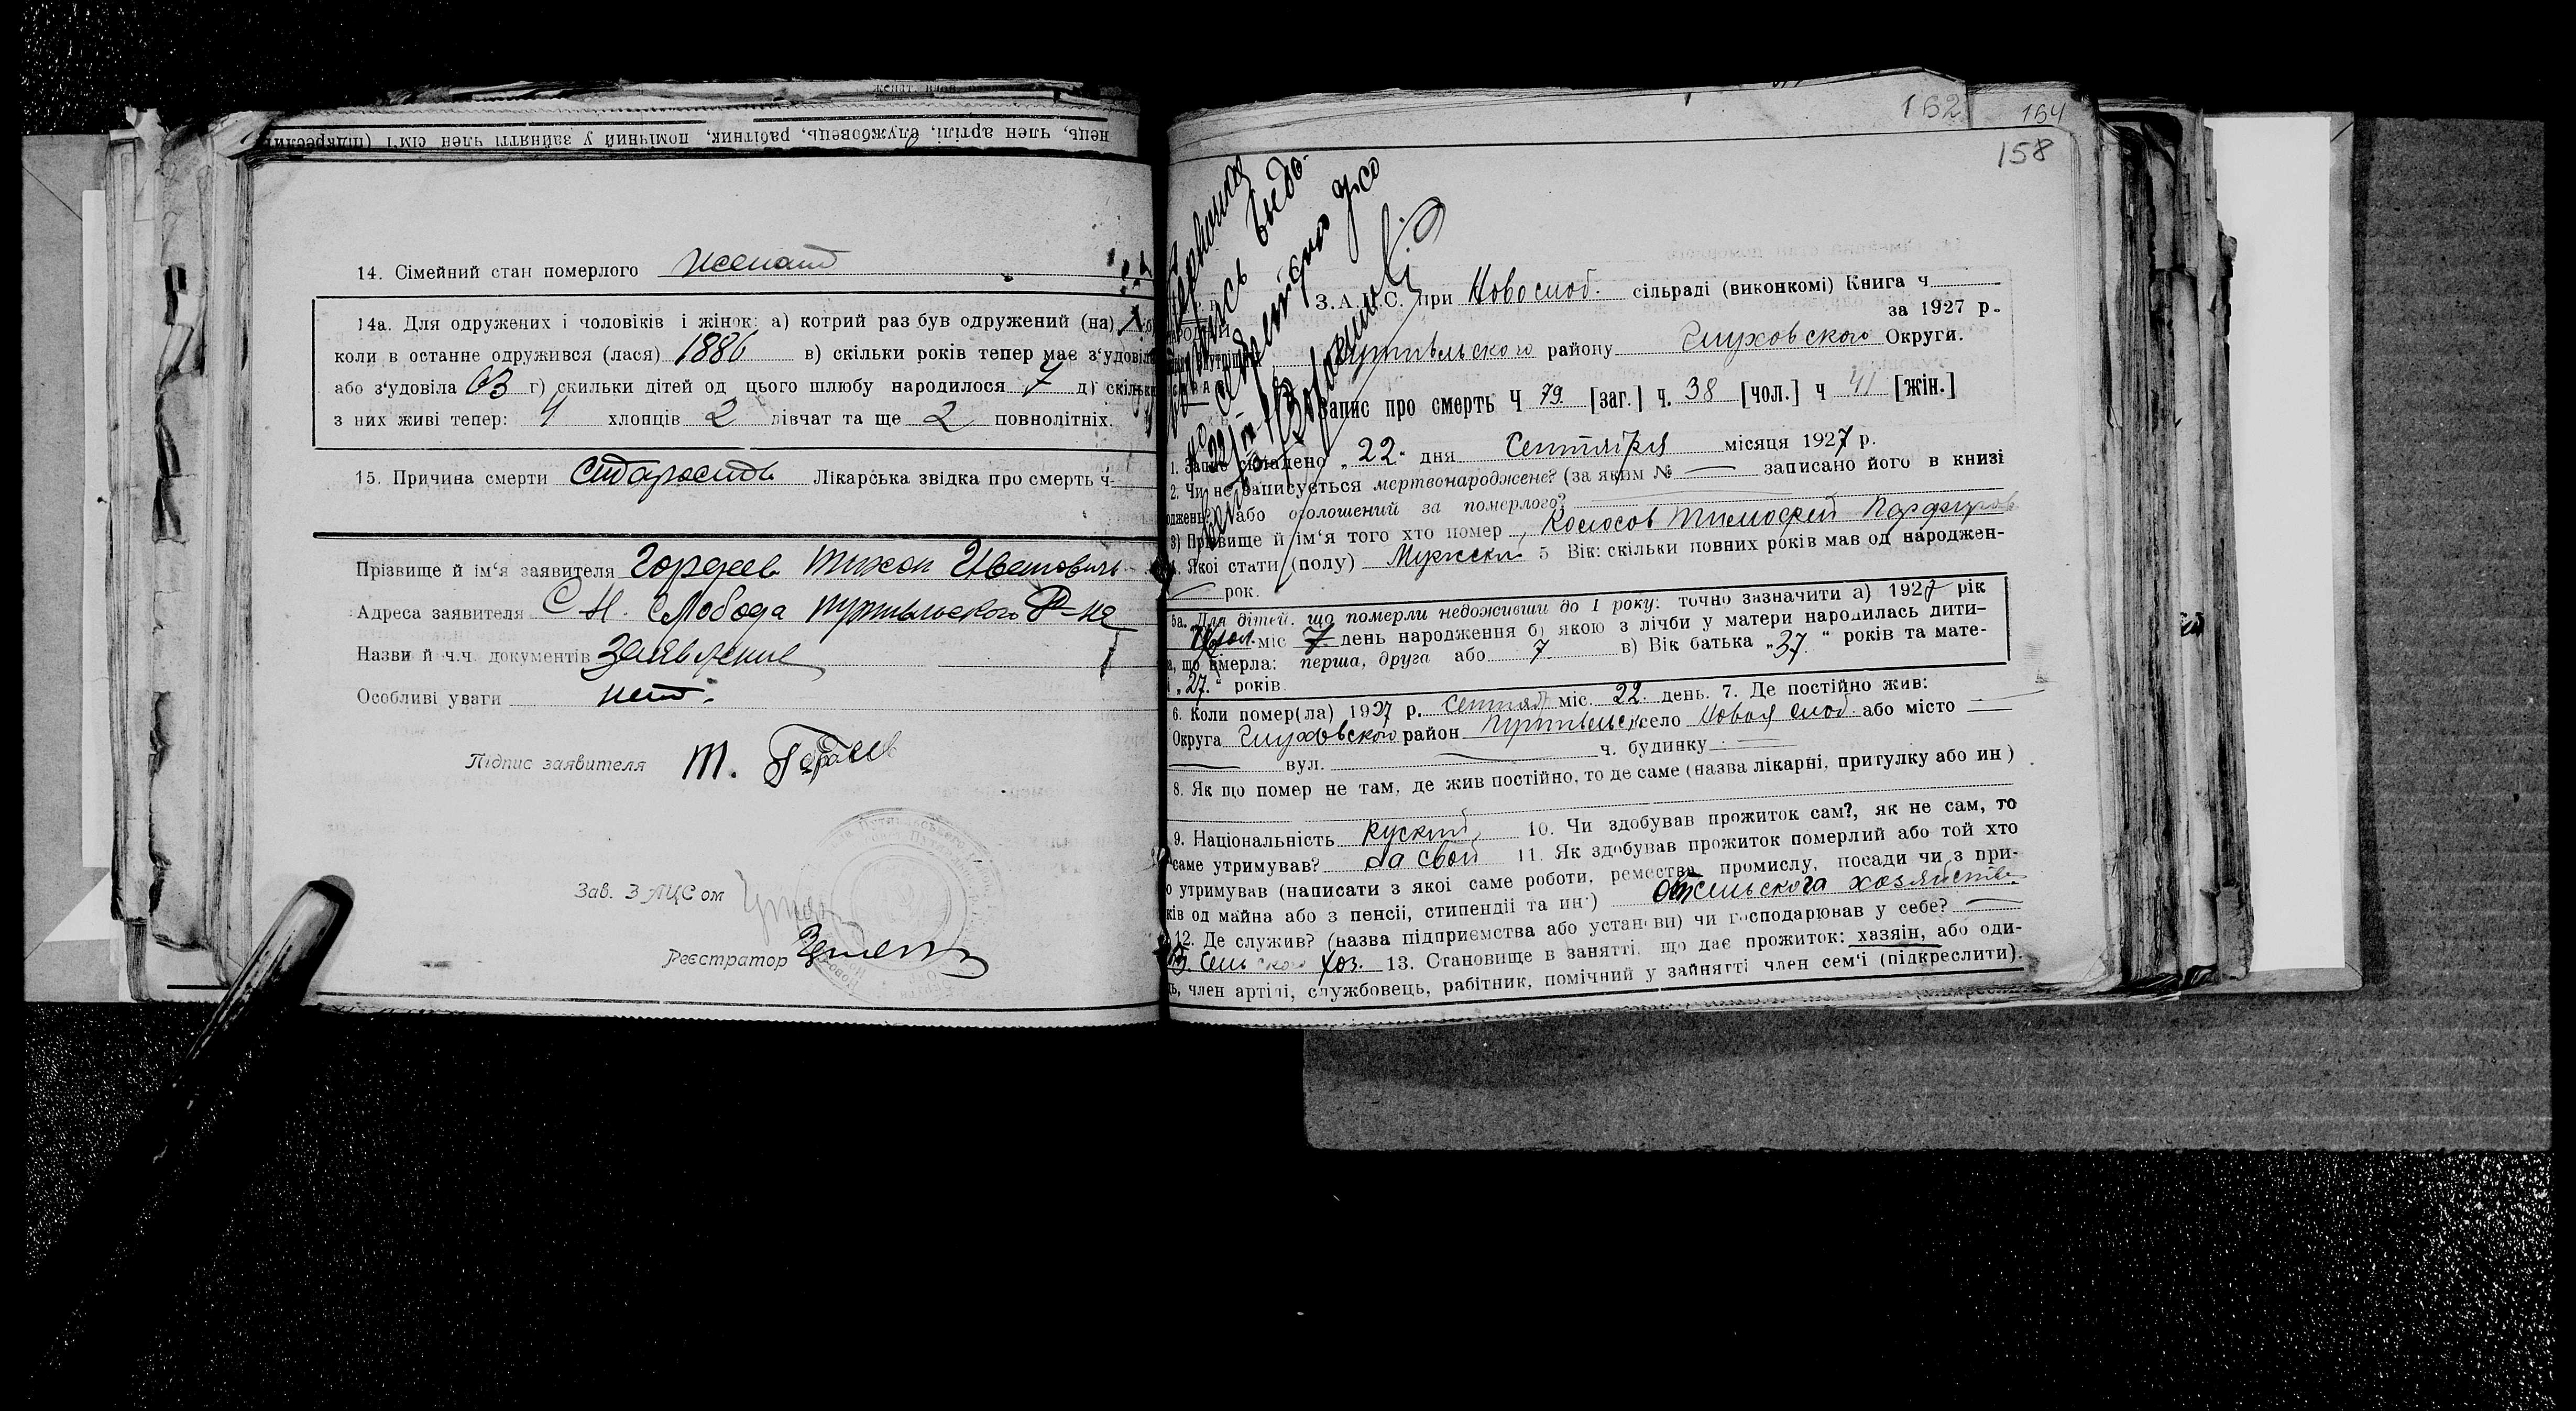 нець, член артілі, службовець, рабітник, помічний у зайнятті член сім'ї (підкреслить
14. Сімейний стан померлого женат
14а. Для одружених і чоловіків і жінок: а) котрий раз був одружений (на) 1
коли в останне одружився (лася) 1886 в) скільки років тепер має з'удовіл
або з'удовіла 63 г) скильки дітей од цього шлюбу народилося 7 д) скільк
з них живі тепер: 1 хлопців 2 дівчат та ще 2 повнолітніх.
15. Причина смерти старость Лікарська звідка про смерть ч.
Прізвище й ім'я заявителя Гордеев Тихон Иванович
Адреса заявителя С Н. Слобода Путивльского Р-на
Назви й ч.ч. документів Заявление
Особливі уваги нет.
Підпис заявителя Т. Гордеев
Зав. ЗАЦСом
Реєстратор
162
164
158
З.А.Ц.С. при Новослоб. сільраді (виконкомі) Книга ч
за 1927 р.
Путивльского району Глуховского Округи.
Запис про смерть Ч 79 [заг.] ч. 38 [чол.] ч 41 [жін.]
1. Запис складено „22" дня Сентября місяця 1927 р.
2. Чи не записується мертвонароджене? (за яким № — записано його в книзі
оджень? або оголошений за померлого?
3) Прізвище й ім'я того хто помер Колосов Тимофей Парфиров
4. Якої стати (полу) Мужск. 5 Вік: скільки повних років мав од народжен-
— рок.
5а. Для дітей, що померли недоживши до 1 року: точно зазначити а) 1927 рік
Июл. міс 7 день народження б) якою з лічби у матери народилась дити-
а, що вмерла: перша, друга або 7 в) Вік батька „37" років та мате-
і „27" років.
6. Коли помер(ла) 1927 р. Сентяб міс. 22 день. 7. Де постійно жив:
Округа Глуховского район Путивльск село Новая слоб. або місто —
— вул. — ч. будинку —
8. Як що помер не там, де жив постійно, то де саме (назва лікарні, притулку або ин)
9. Національність Руский 10. Чи здобував прожиток сам?, як не сам, то
саме утримував? на свои 11. Як здобував прожиток померлий або той хто
о утримував (написати з якої саме роботи, ремества, промислу, посади чи з при-
ків од майна або з пенсії, стипендії та ин.) от сельского хозяйства
12. Де служив? (назва підприємства або установи) чи господарював у себе? —
Сельского хоз. 13. Становище в занятті, що дає прожиток: хазяін, або оди-
ь, член артілі, службовець, рабітник, помічний у зайнятті член сем'ї (підкреслити).